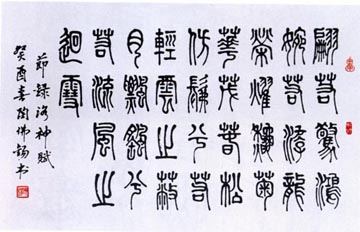 翩若驚鴻
婉若游龍
榮耀秋菊
華茂春松
仿髴兮若
輕雲之蔽
月飄颻兮
若流風之
迴雪
節錄洛神賦
癸酉春陶佛錫书